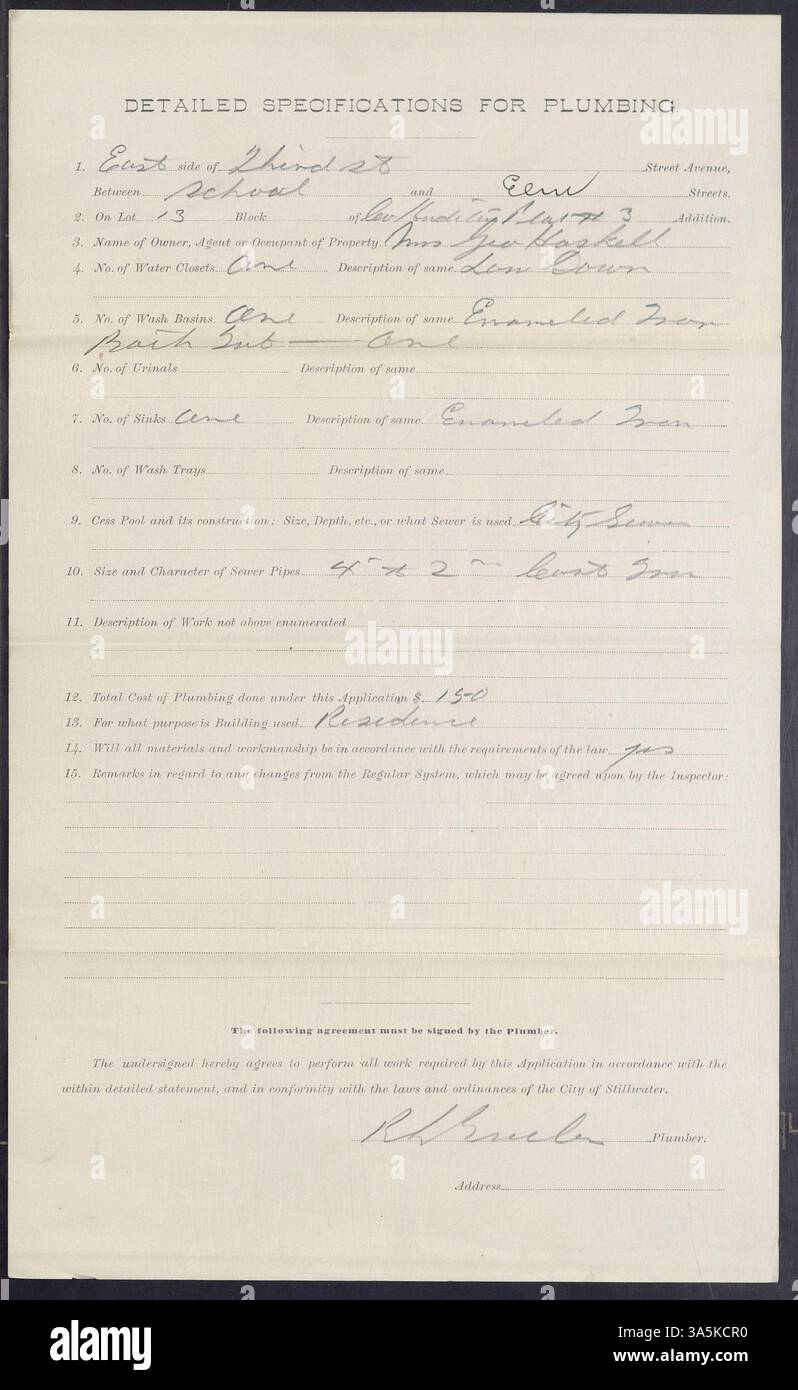 DETAILED SPECIFICATIONS FOR PLUMBING.
1. East side of Third st Street Avenue,
Between School and Elm Streets.
2. On Lot 13 Block of Co Auditor Plat # 3 Addition.
3. Name of Owner, Agent or Occupant of Property. Mrs Geo Haskell
4. No. of Water Closets. One Description of same. Low Down
5. No. of Wash Basins. One Description of same. Enameled Iron
Bath Tub — One
6. No. of Urinals Description of same.
7. No. of Sinks One Description of same. Enameled Iron
8. No. of Wash Trays. Description of same.
9. Cess Pool and its construction: Size, Depth, etc., or what Sewer is used. City Sewer
10. Size and Character of Sewer Pipes. 4" + 2" Cast Iron
11. Description of Work not above enumerated.
12. Total Cost of Plumbing done under this Application $. 150
13. For what purpose is Building used. Residence
14. Will all materials and workmanship be in accordance with the requirements of the law. yes
15. Remarks in regard to any changes from the Regular System, which may be agreed upon by the Inspector:
The following agreement must be signed by the Plumber.
The undersigned hereby agrees to perform all work required by this Application in accordance with the
within detailed statement, and in conformity with the laws and ordinances of the City of Stillwater.
Plumber.
Address.
alamy
alamy
alamy
alamy
Image ID: 3A5KCR0
www.alamy.com